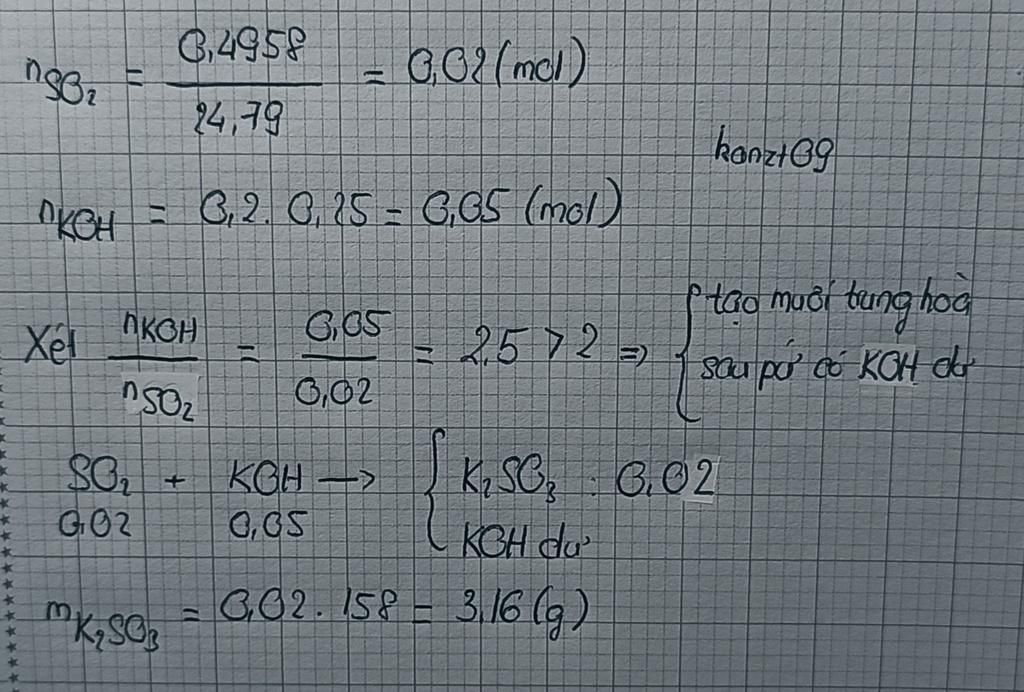 nSO₂ = 0,4958 / 24,79 = 0,02 (mol)
kanzt09
nKOH = 0,2 . 0,25 = 0,05 (mol)
Xét nKOH / nSO₂ = 0,05 / 0,02 = 2,5 > 2 => { tạo muối trung hoà
sau pứ có KOH dư
SO₂ + KOH → { K₂SO₃ : 0,02
0,02 0,05 KOH dư
mK₂SO₃ = 0,02 . 158 = 3,16 (g)